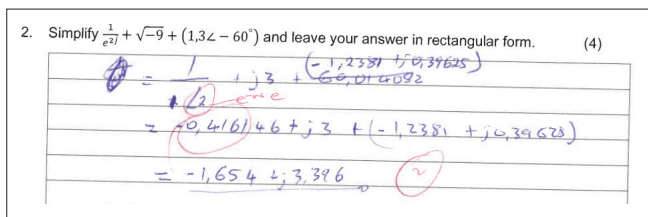 2. Simplify 1/e^(2j) + √−9 + (1,3∠ − 60°) and leave your answer in rectangular form. (4)
= 1/1∠2 + j3 + (-1,2381 + j0,39625)
60,014092
= -0,416146 + j3 + (-1,2381 + j0,39628)
= -1,654 + j3,396
2